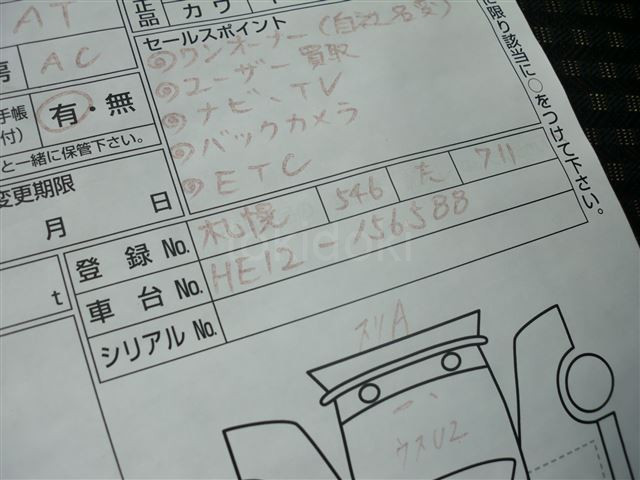 AT
正品 カワ
セールスポイント
◎ワンオーナー(自社名変)
号 AC
◎ユーザー買取
◎ナビ、TV
手帳 有・無
付)
◎バックカメラ
と一緒に保管下さい。
◎ETC
変更期限
月 日
に限り該当に○をつけて下さい。
登録 No. 札幌 546 た 711
車台 No. HE12-156588
t
シリアル No.
スリA
ウスU2